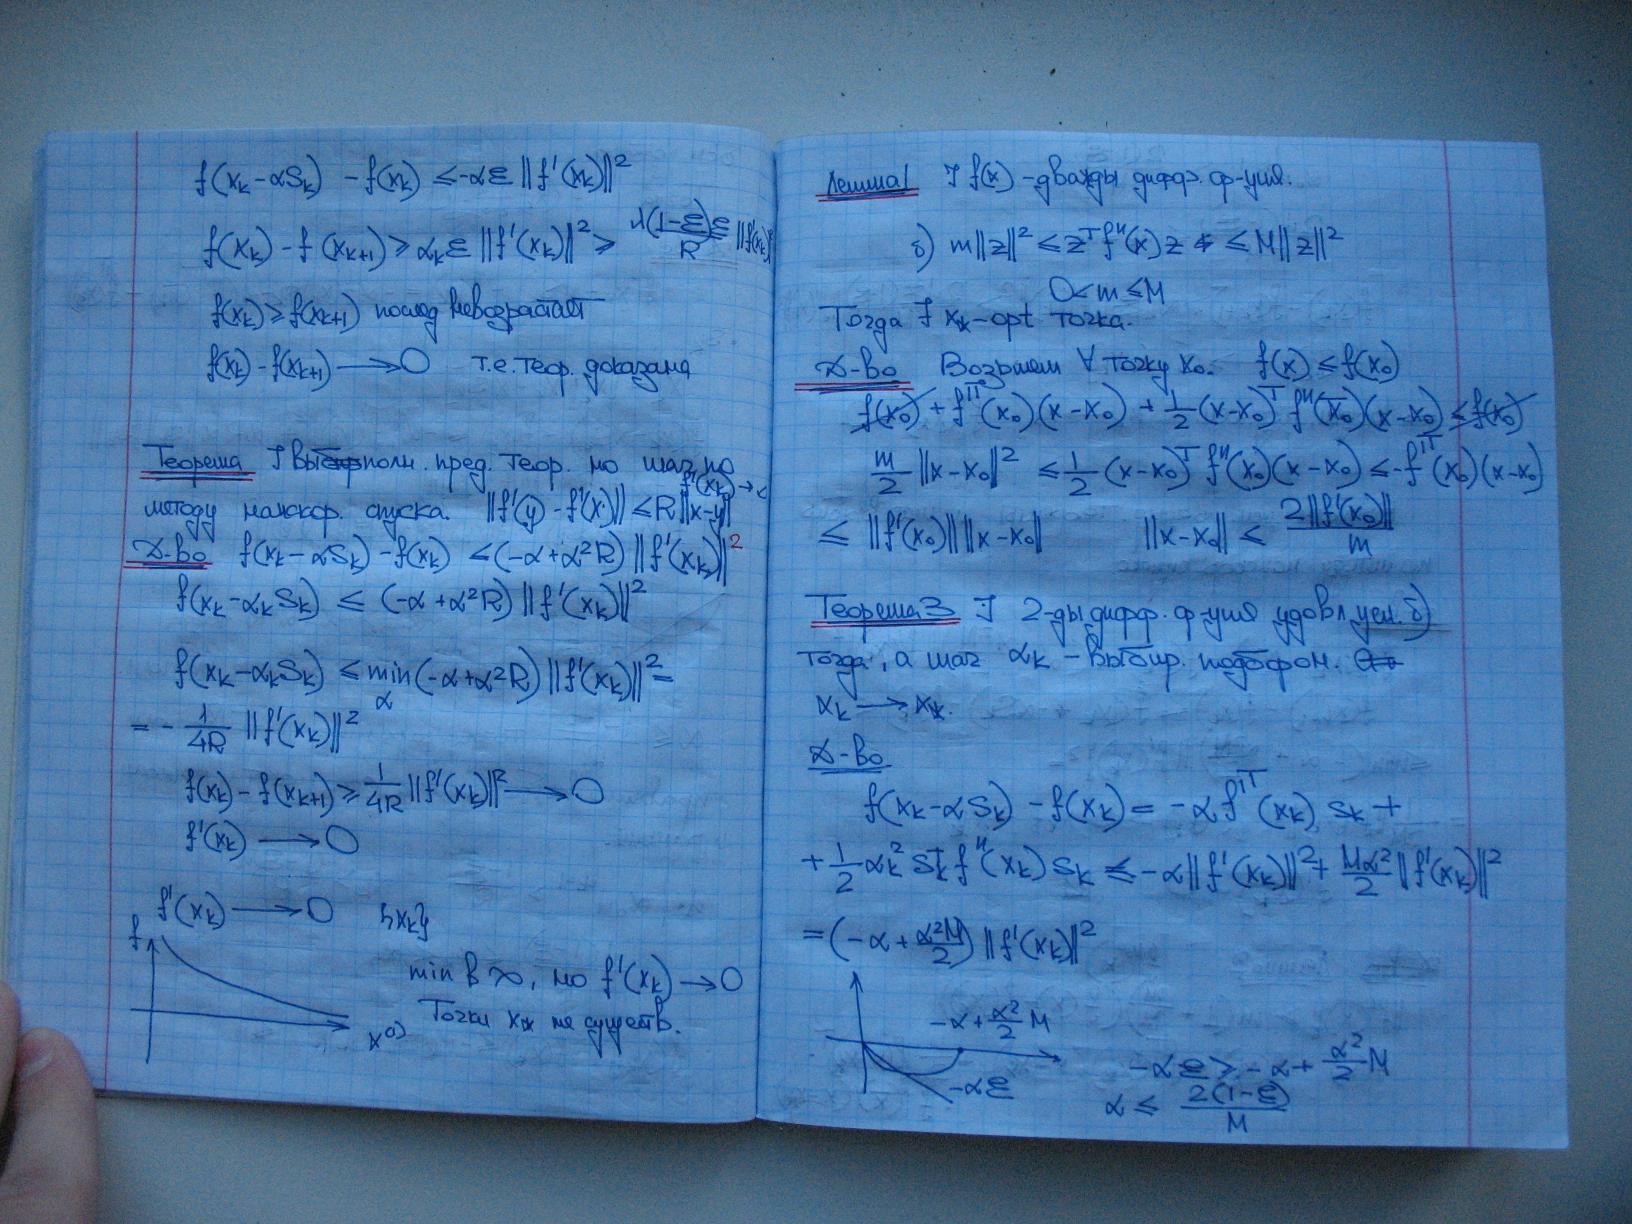 f(xₖ - αSₖ) - f(xₖ) ≤ -αε ||f'(xₖ)||²
f(xₖ) - f(xₖ₊₁) ≥ αₖε ||f'(xₖ)||² ≥ λ(1-ε)ε/R ||f'(xₖ)||²
f(xₖ) ≥ f(xₖ₊₁) послед невозрастает
f(xₖ) - f(xₖ₊₁) → 0 т.е. теор. доказана
Теорема ] выполн. пред. теор. но шаг по
f'(xₖ) →
методу наискор. спуска. ||f'(y) - f'(x)|| ≤ R||x-y||
Д-во f(xₖ - αSₖ) - f(xₖ) ≤ (-α + α²R) ||f'(xₖ)||²
f(xₖ - αₖSₖ) ≤ (-α + α²R) ||f'(xₖ)||²
f(xₖ - αₖSₖ) ≤ min (-α + α²R) ||f'(xₖ)||² =
α
= - 1/4R ||f'(xₖ)||²
f(xₖ) - f(xₖ₊₁) ≥ 1/4R ||f'(xₖ)||² → 0
f'(xₖ) → 0
f'(xₖ) → 0 {xₖ}
f
min в ∞, но f'(xₖ) → 0
x а) Точки x* не существ.
Лемма 1 ] f(x) - дважды дифф. ф-ция.
б) m||z||² ≤ zᵀf''(x)z ≤ M||z||²
0 < m ≤ M
Тогда ∃ x* - opt точка.
Д-во Возьмем ∀ точку x₀. f(x) ≤ f(x₀)
f(x₀) + f'ᵀ(x₀)(x-x₀) + 1/2 (x-x₀)ᵀ f''(x̄₀)(x-x₀) ≤ f(x₀)
m/2 ||x-x₀||² ≤ 1/2 (x-x₀)ᵀ f''(x̄₀)(x-x₀) ≤ -f'ᵀ(x₀)(x-x₀)
≤ ||f'(x₀)|| ||x-x₀|| ||x-x₀|| ≤ 2||f'(x₀)||/m
Теорема 3 ] 2-ды дифф. ф-ция удовл. усл. б)
тогда, а шаг αₖ - выбир. подобром.
xₖ → x*.
Д-во
f(xₖ - αSₖ) - f(xₖ) = -αf'ᵀ(xₖ) sₖ +
+ 1/2 αₖ² sₖᵀ f''(xₖ) sₖ ≤ -α||f'(xₖ)||² + Mα²/2 ||f'(xₖ)||²
= (-α + α²M/2) ||f'(xₖ)||²
-α + α²/2 M
-αε
-αε ≥ -α + α²/2 M
α ≤ 2(1-ε)/M